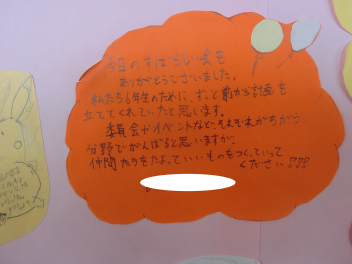 今日のすばらしい会を
ありがとうございました。
私たち6年生のために、ずっと前から計画を
立ててくれていたと思います。
委員会やイベントなど、それぞれがちがう
分野でがんばると思いますが、
仲間たちをたよっていいものをつくっていって
ください!!!